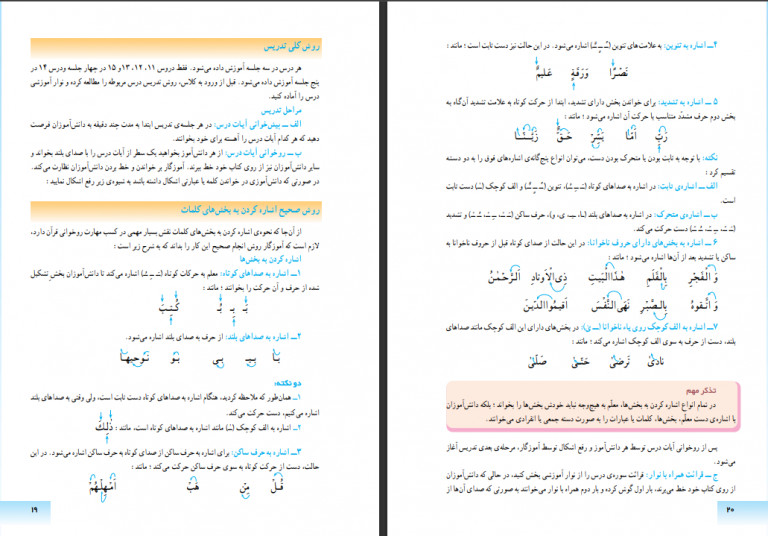 روش کلی تدریس
هر درس در سه جلسه آموزش داده می‌شود. فقط دروس ۱۱، ۱۲، ۱۳ و ۱۵ در چهار جلسه ودرس ۱۴ در
پنج جلسه آموزش داده می‌شود. قبل از ورود به کلاس، روش تدریس درس مربوطه را مطالعه کرده و نوار آموزشی
درس را آماده کنید.
مراحل تدریس
الف ــ پیش‌خوانی آیات درس: در هر جلسه‌ی تدریس ابتدا به مدت چند دقیقه به دانش‌آموزان فرصت
دهید که هر کدام آیات درس را آهسته برای خود بخوانند.
ب ــ روخوانی آیات درس: از هر دانش‌آموز بخواهید یک سطر از آیات درس را با صدای بلند بخواند و
سایر دانش‌آموزان نیز از روی کتاب خود خط ببرند. آموزگار بر خواندن و خط بردن دانش‌آموزان نظارت می‌کند.
در صورتی که دانش‌آموزی در خواندن کلمه یا عبارتی اشکال داشته باشد به شیوه‌ی زیر رفع اشکال نمایید :
روش صحیح اشاره کردن به بخش‌های کلمات
از آن‌جا که نحوه‌ی اشاره کردن به بخش‌های کلمات نقش بسیار مهمی در کسب مهارت روخوانی قرآن دارد،
لازم است که آموزگار روش انجام صحیح این کار را بداند که به شرح زیر است :
اشاره کردن به بخش‌ها
۱ــ اشاره به صداهای کوتاه: معلم به حرکات کوتاه (ـَـِـُ) اشاره می‌کند تا دانش‌آموزان بخش تشکیل
شده از حرف و آن حرکت را بخوانند ؛ مانند :
بَـ بِـ بُـ کُتِبَ
۲ــ اشاره به صداهای بلند: از حرف به صدای بلند اشاره می‌شود.
بَـا بِـی بی بَو نوحیها
دو نکته:
۱ــ همان‌طور که ملاحظه کردید، هنگام اشاره به صداهای کوتاه دست ثابت است، ولی وقتی به صداهای بلند
اشاره می‌کنیم، دست حرکت می‌کند.
۲ــ اشاره به الف کوچک (ـٰ) مانند اشاره به صداهای کوتاه است، مانند : ذٰلِكَ
۳ــ اشاره به حرف ساکن: برای اشاره به حرف ساکن از صدای کوتاه به حرف ساکن اشاره می‌شود. در این
حالت، دست از حرکت کوتاه به سوی حرف ساکن حرکت می‌کند ؛ مانند :
قُـلْ مِنْ هَبْ اَمْهِلْهُمْ
۱۹
۴ــ اشاره به تنوین: به علامت‌های تنوین (ـًـٍـٌ) اشاره می‌شود. در این حالت نیز دست ثابت است ؛ مانند :
نَصْرًا وَرَقَةٍ عَلیمٌ
۵ ــ اشاره به تشدید: برای خواندن بخش دارای تشدید، ابتدا از حرکت کوتاه به علامت تشدید آن‌گاه به
بخش دوم حرف مشدّد متناسب با حرکت آن اشاره می‌شود ؛ مانند :
رَبِّ اَمّا بَشِّرْ حَقٌّ رَبَّنـا
نکته: با توجه به ثابت بودن یا متحرک بودن دست، می‌توان انواع پنج‌گانه‌ی اشاره‌های فوق را به دو دسته
تقسیم کرد :
الف ــ اشاره‌ی ثابت: در اشاره به صداهای کوتاه (ـَـِـُ)، تنوین (ـًـٍـٌ) و الف کوچک (ـٰ) دست ثابت
است.
ب ــ اشاره‌ی متحرک: در اشاره به صداهای بلند (ـا، ـی، و)، حرف ساکن و تشدید
دست حرکت می‌کند.
۶ ــ اشاره به بخش‌های دارای حروف ناخوانا: در این حالت از صدای کوتاه قبل از حروف ناخوانا به
ساکن یا تشدید بعد از آن‌ها اشاره می‌شود ؛ مانند :
وَ الْفَجْرِ بِالْقَلَمِ هٰذَا الْبَیْتِ ذِی الْاَوتادِ اَلرَّحْمٰنُ
وَ اتَّقوهُ بِالصَّبْرِ نَهَی النَّفْسَ اَقیمُوا الدّینَ
۷ــ اشاره به الف کوچک روی پایه ناخوانا (ــیٰ): در بخش‌های دارای این الف کوچک مانند صداهای
بلند، دست از حرف به سوی الف کوچک اشاره می‌کند ؛ مانند :
نادیٰ تَرضیٰ حَتّیٰ صَلّیٰ
تذکر مهم
در تمام انواع اشاره کردن به بخش‌ها، معلّم به هیچ‌وجه نباید خودش بخش‌ها را بخواند ؛ بلکه دانش‌آموزان
با اشاره‌ی دست معلّم، بخش‌ها، کلمات یا عبارات را به صورت دسته جمعی یا انفرادی می‌خوانند.
پس از روخوانی آیات درس توسط هر دانش‌آموز و رفع اشکال توسط آموزگار، مرحله‌ی بعدی تدریس آغاز
می‌شود.
ج ــ قرائت همراه با نوار: قرائت سوره‌ی درس را از نوار آموزشی پخش کنید، در حالی که دانش‌آموزان
از روی کتاب خود خط می‌برند، بار اول گوش کرده و بار دوم همراه با نوار می‌خوانند به صورتی که صدای آن‌ها از
۲۰